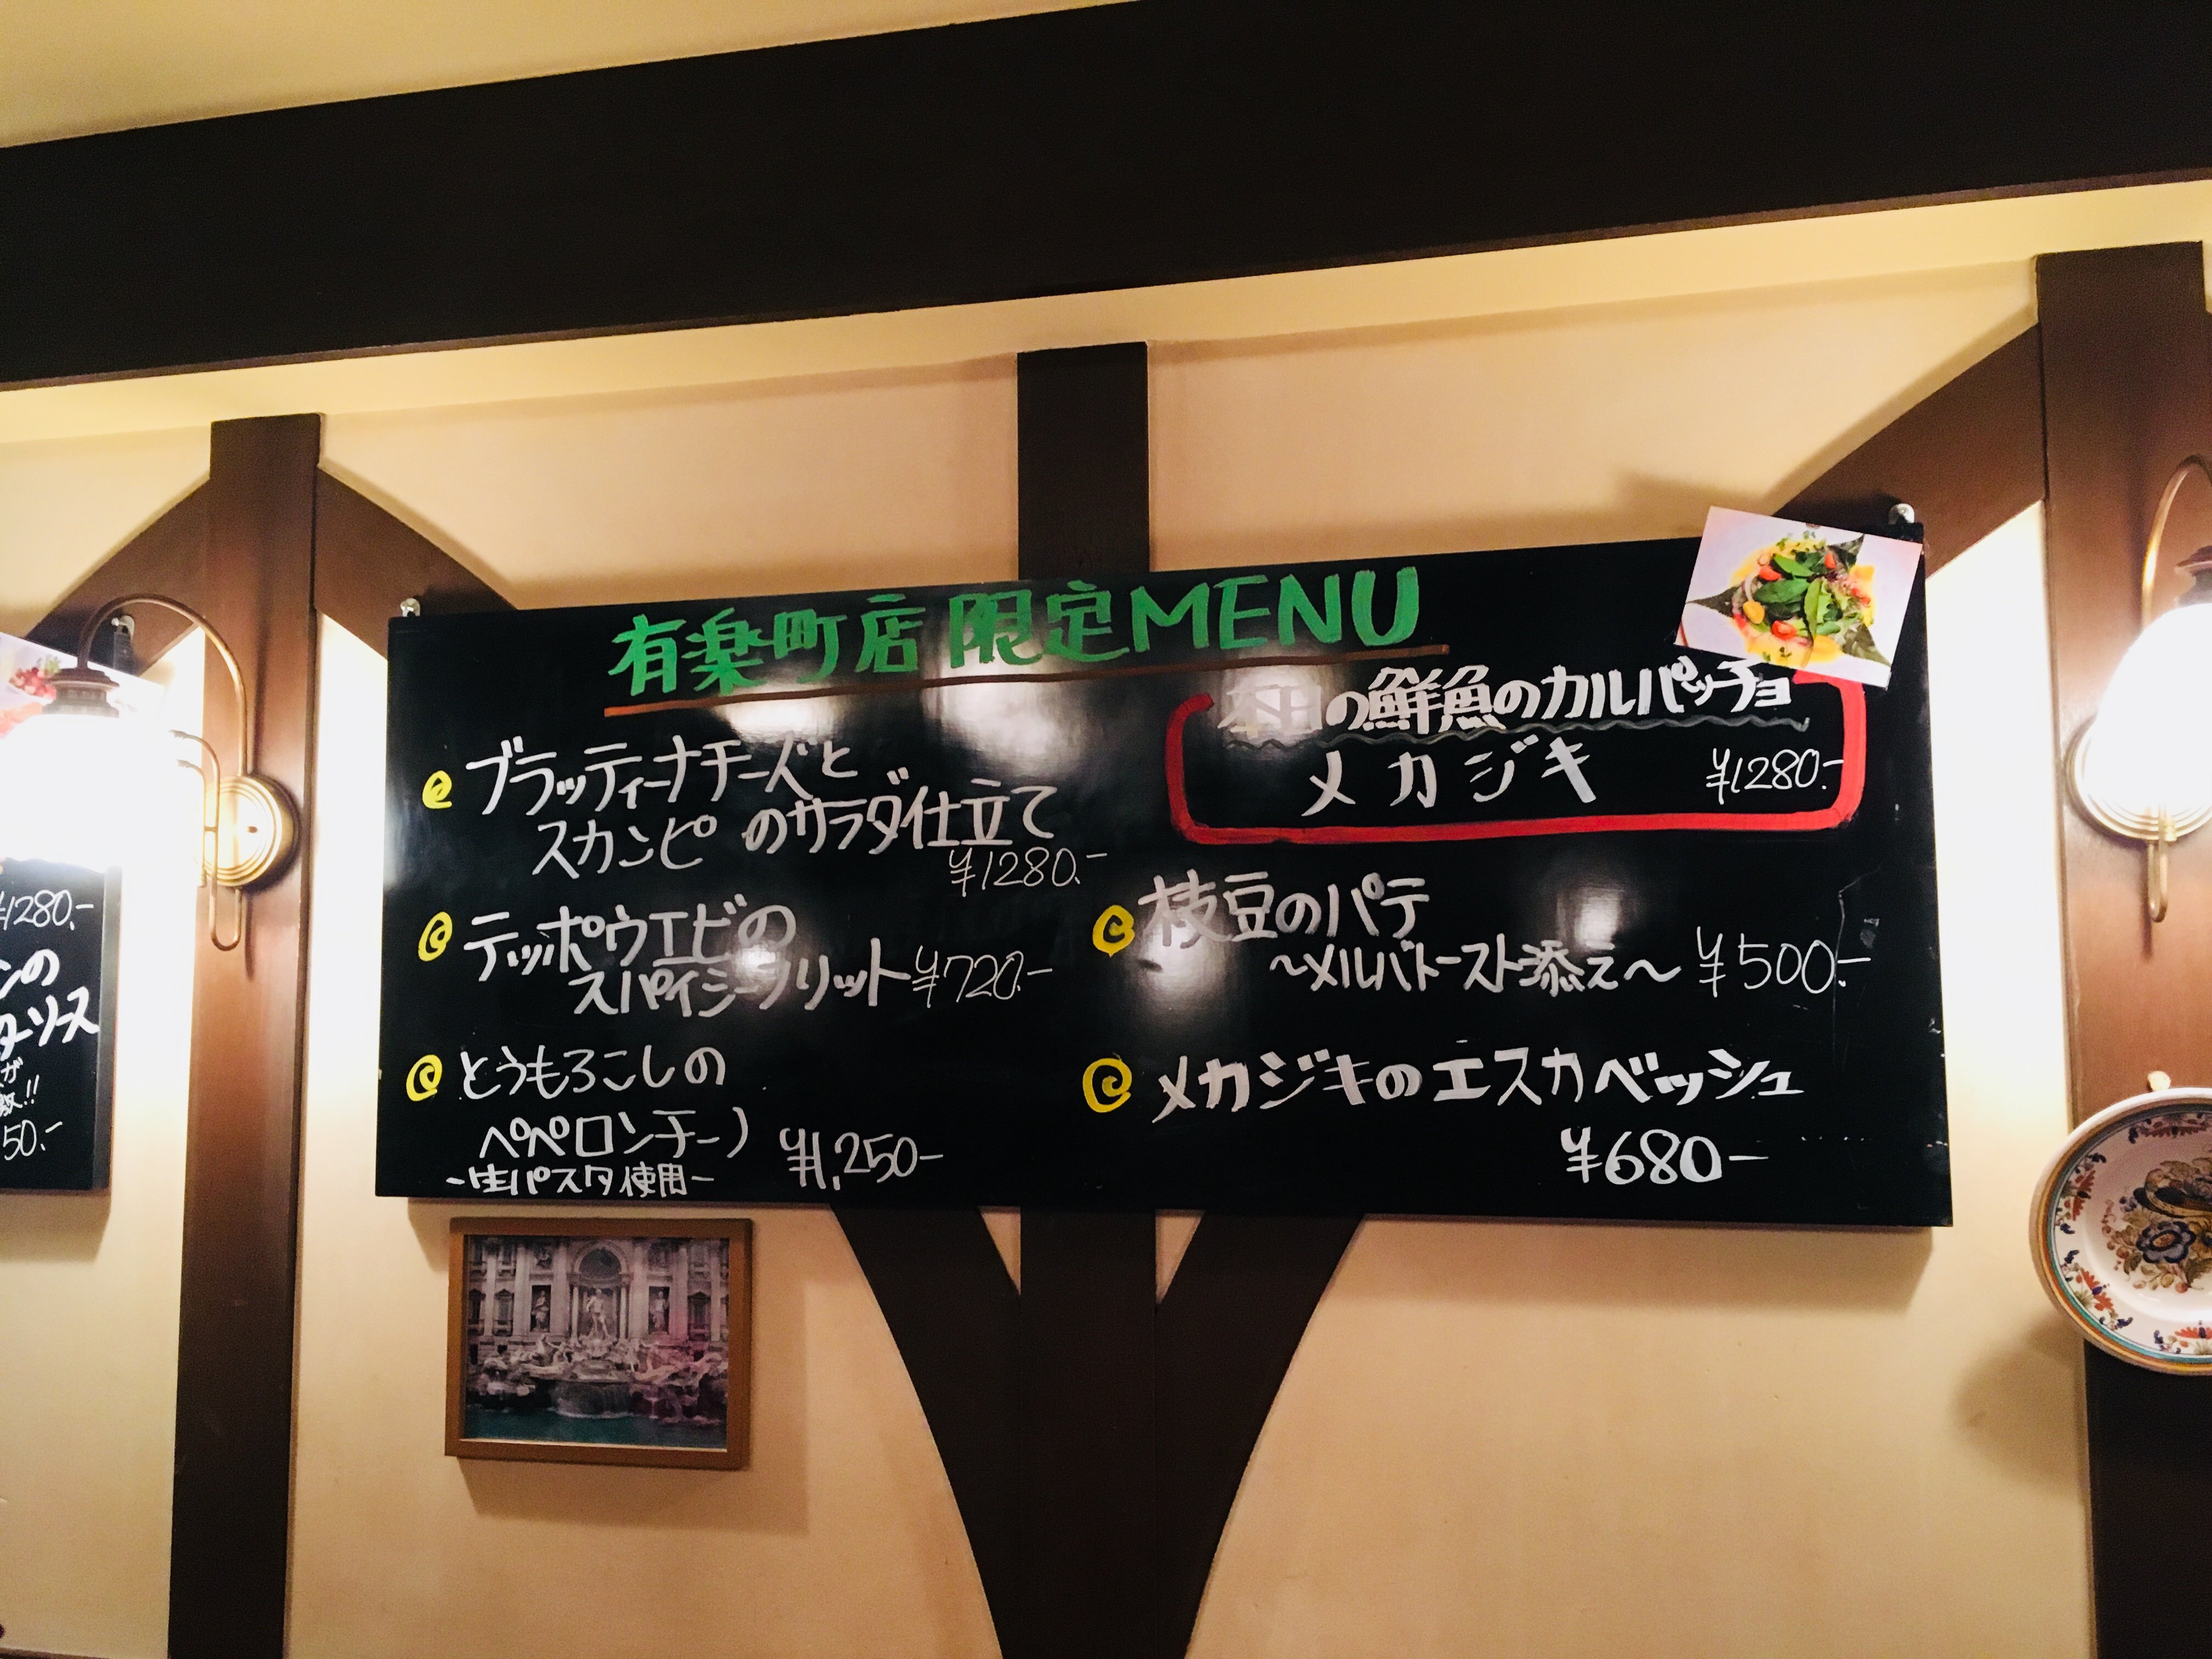 有楽町店限定MENU
ブラッティーナチーズと
スカンピのサラダ仕立て
¥1280.-
テッポウエビの
スパイシーフリット ¥720.-
とうもろこしの
ペペロンチーノ
~生パスタ使用~ ¥1,250-
本日の鮮魚のカルパッチョ
メカジキ ¥1280.-
枝豆のパテ
~メルバトースト添え~ ¥500.-
メカジキのエスカベッシュ
¥680-
¥1280.-
ンの
ターソース
が
!!
50.-